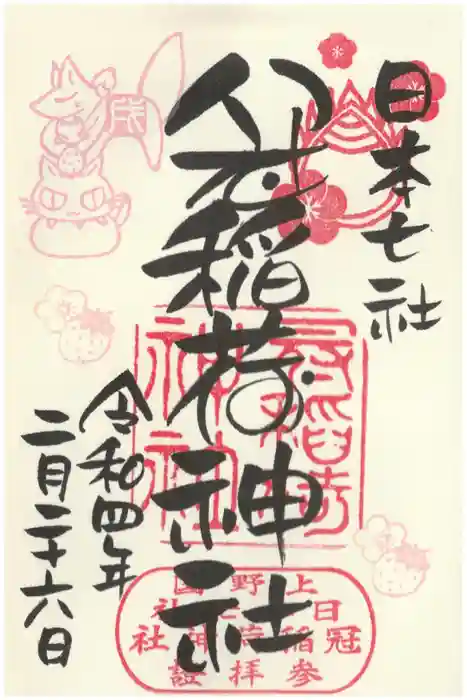 日本七社
冠稲荷神社
令和四年
二月二十六日
冠稲荷
神社
上野國
日本七社
冠稲荷神社
参拝證